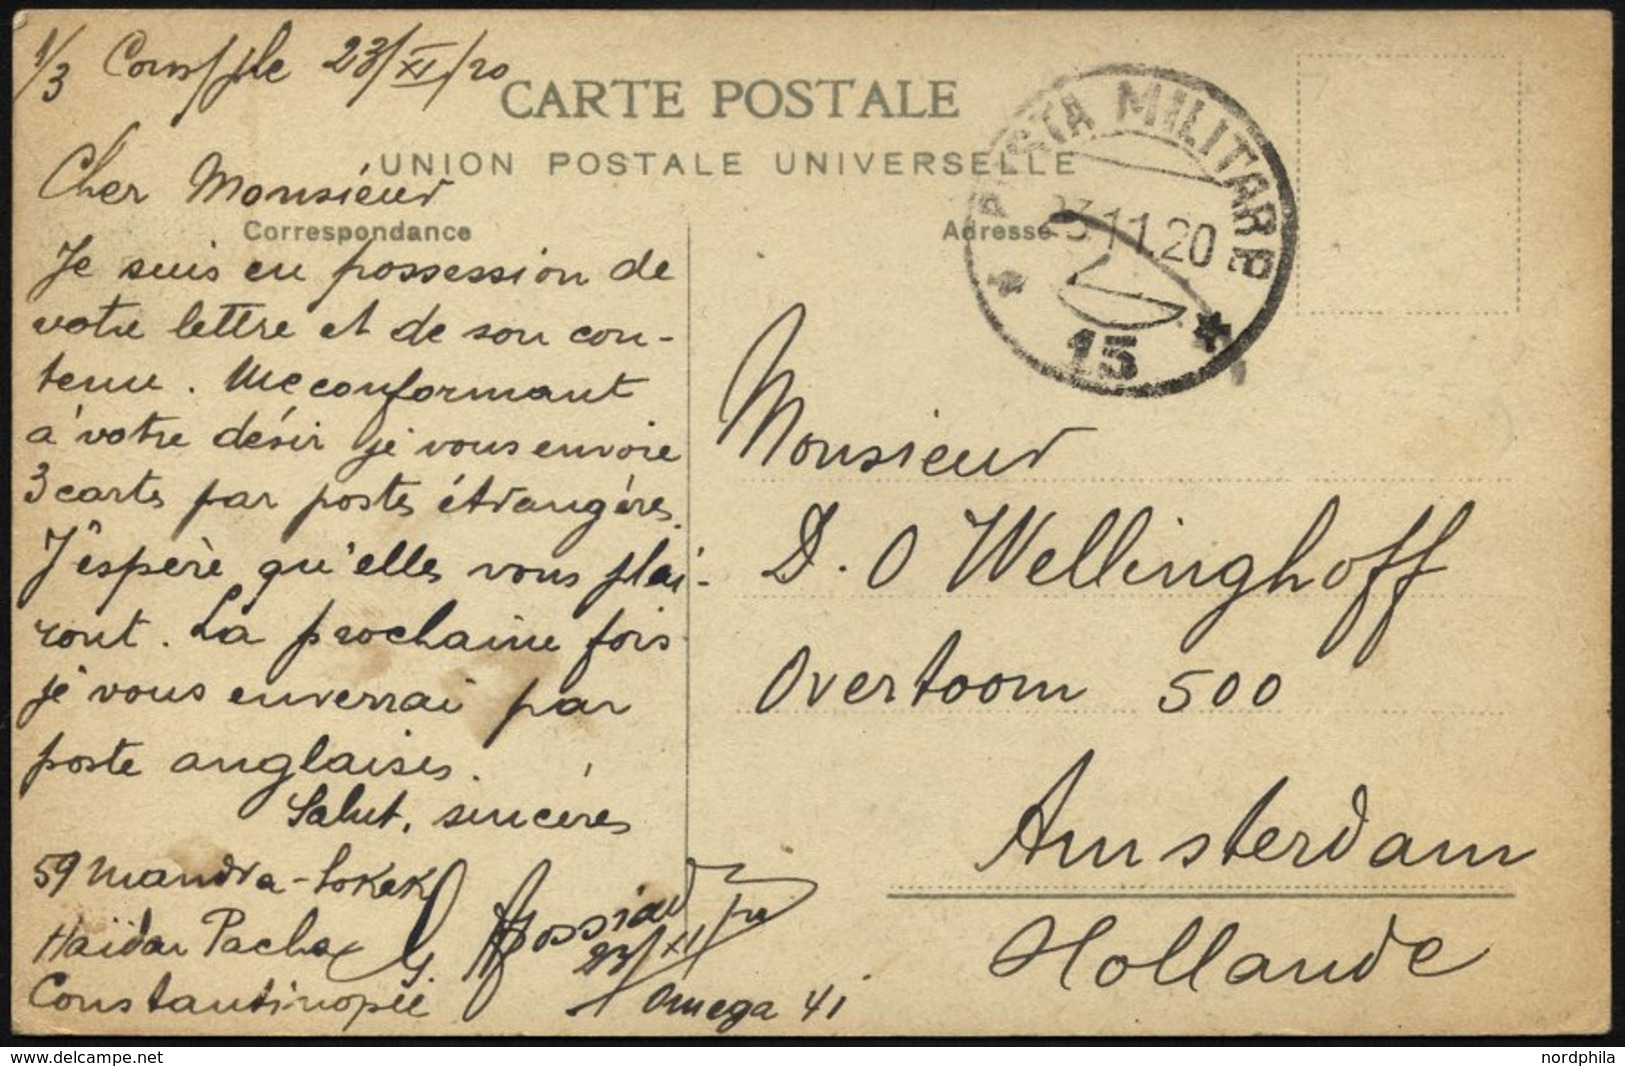 1/3 Cons/ple 23/XI/20
CARTE POSTALE
UNION POSTALE UNIVERSELLE
Correspondance
Adresse
POSTA MILITARE
23.11.20
15
Cher Monsieur
Je suis en possession de
votre lettre et de son con-
tenu. Me conformant
à votre désir je vous envoie
3 cartes par postes étrangères.
J'espère qu'elles vous plai-
ront. La prochaine fois
je vous enverrai par
poste anglaises.
Salut, sincères
59 Mandra-Sokak
Haïdar Pacha
Constantinople
G.
23/XI/20
Omega 41
Monsieur
D. O Wellinghoff
Overtoom 500
Amsterdam
Hollande
www.delcampe.net
nordphila